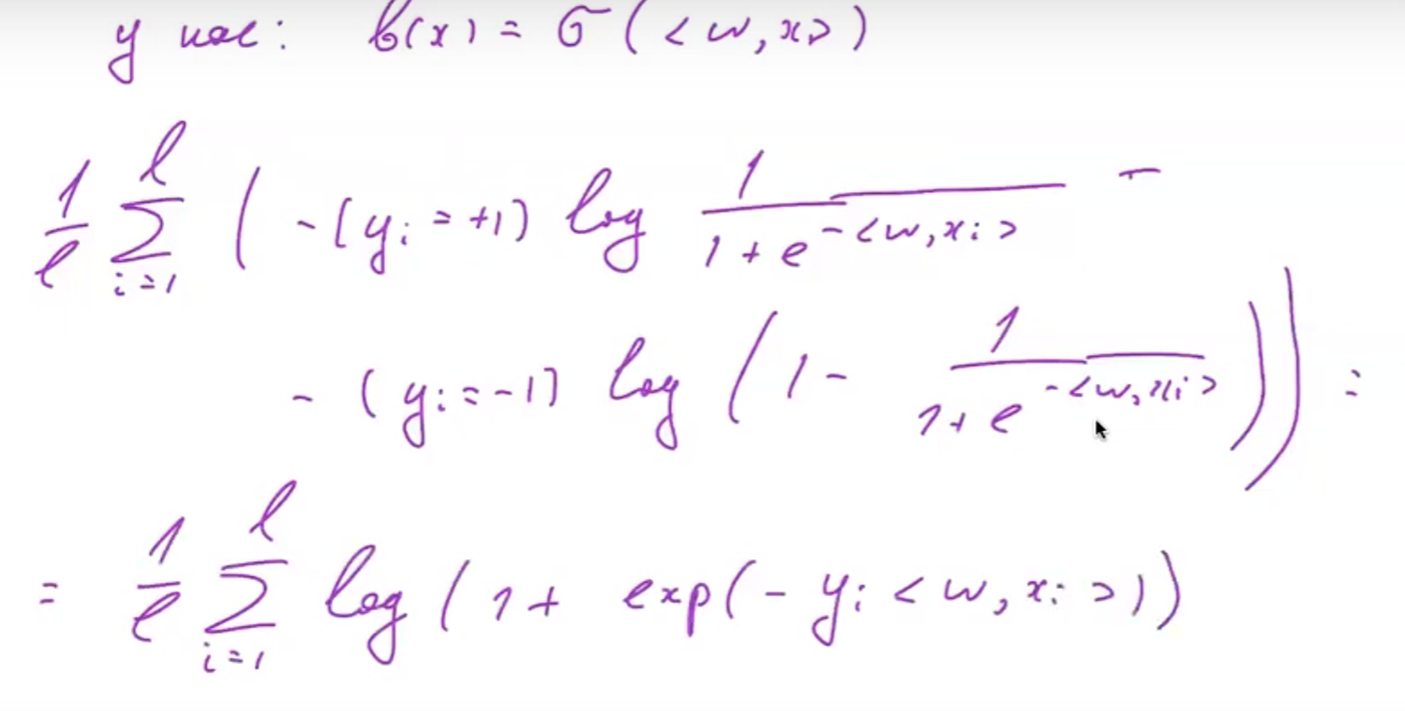 у нас: b(x) = σ(<w, x>)
1/ℓ ∑_{i=1}^{ℓ} ( -(y_i = +1) log 1/(1 + e^{-<w, x_i>}) -
- (y_i = -1) log (1 - 1/(1 + e^{-<w, x_i>}))) =
= 1/ℓ ∑_{i=1}^{ℓ} log(1 + exp(- y_i <w, x_i>))